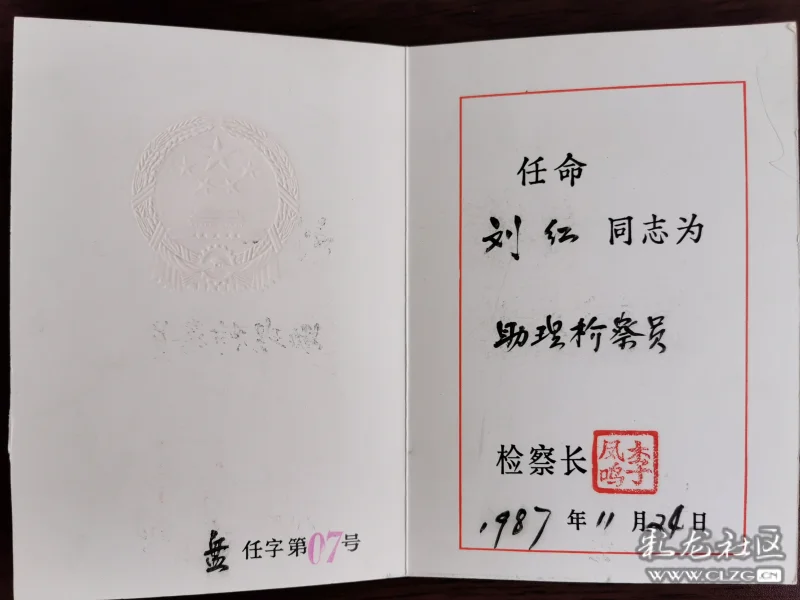 任字第07号
任命
刘红 同志为
助理检察员
检察长
李凤鸣
1987年11月24日
彩龙社区
WWW.CLZG.CN